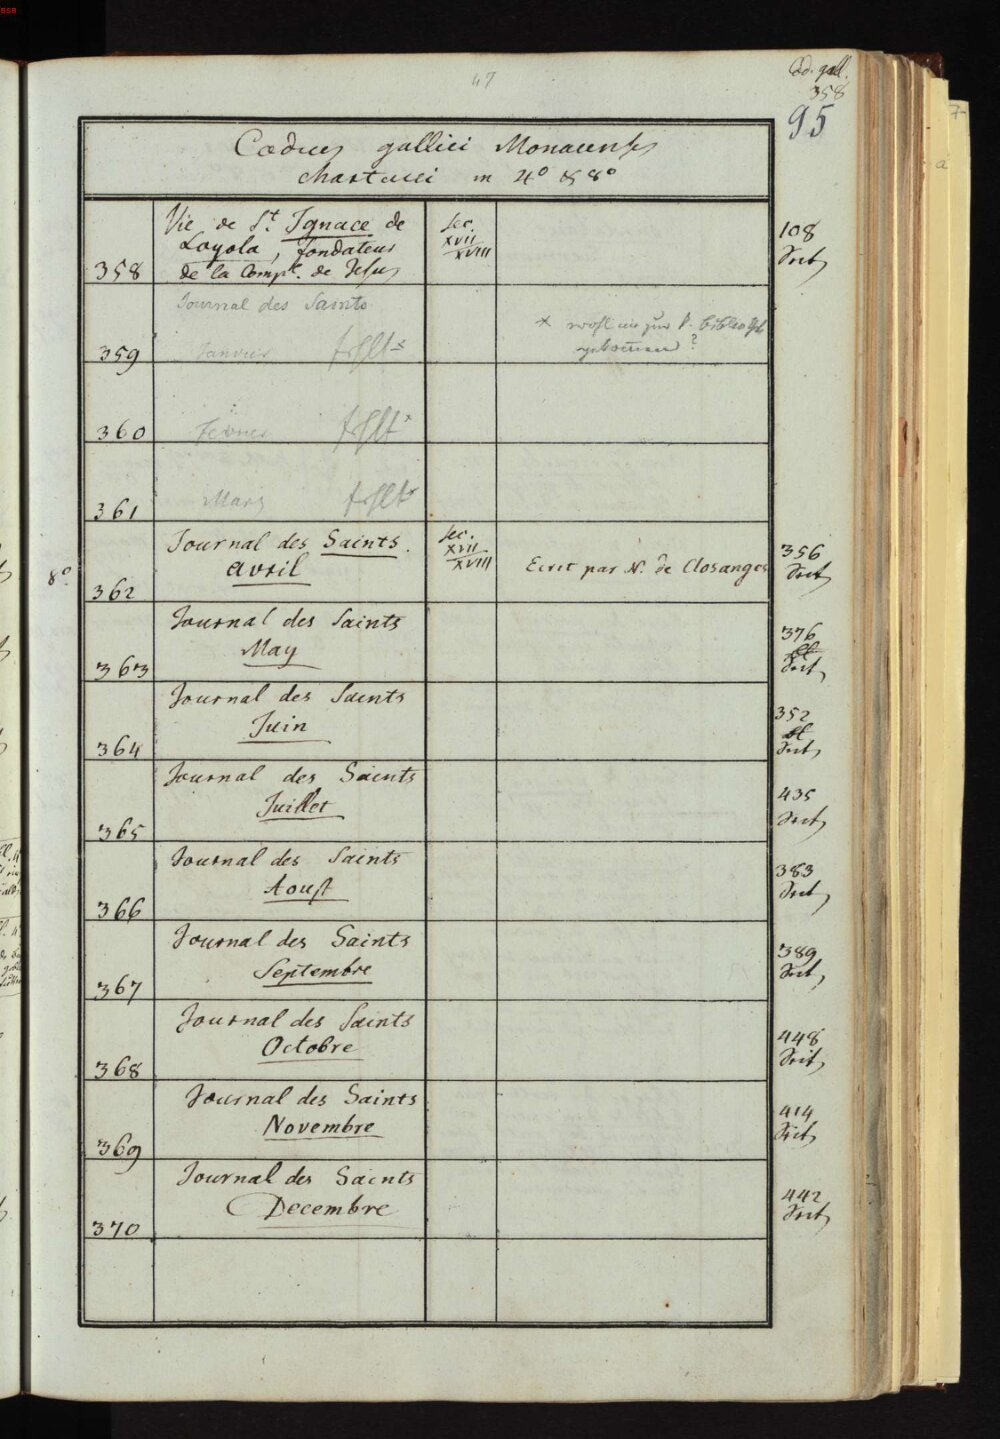 BSB
47
Cod. gall.
358
95
Codices gallici Monacenses
chartacei in 4° & 8°
358
Vie de St. Ignace de
Loyola, fondateur
de la Comp. de Jesus
Sec.
XVII
XVIII
108
Journal des Saints
359 Janvier fehlt *
* wohl nie zur k. Biblioth.
gekommen?
360 Fevrier fehlt *
361 Mars fehlt *
8°
362
Journal des Saints.
Avril
Sec.
XVII
XVIII
Ecrit par N. de Closanges
356
363
Journal des Saints
May
376
364
Journal des Saints
Juin
352
365
Journal des Saints
Juillet
435
366
Journal des Saints
Aoust
383
367
Journal des Saints
Septembre
389
368
Journal des Saints
Octobre
448
369
Journal des Saints
Novembre
414
370
Journal des Saints
Decembre
442